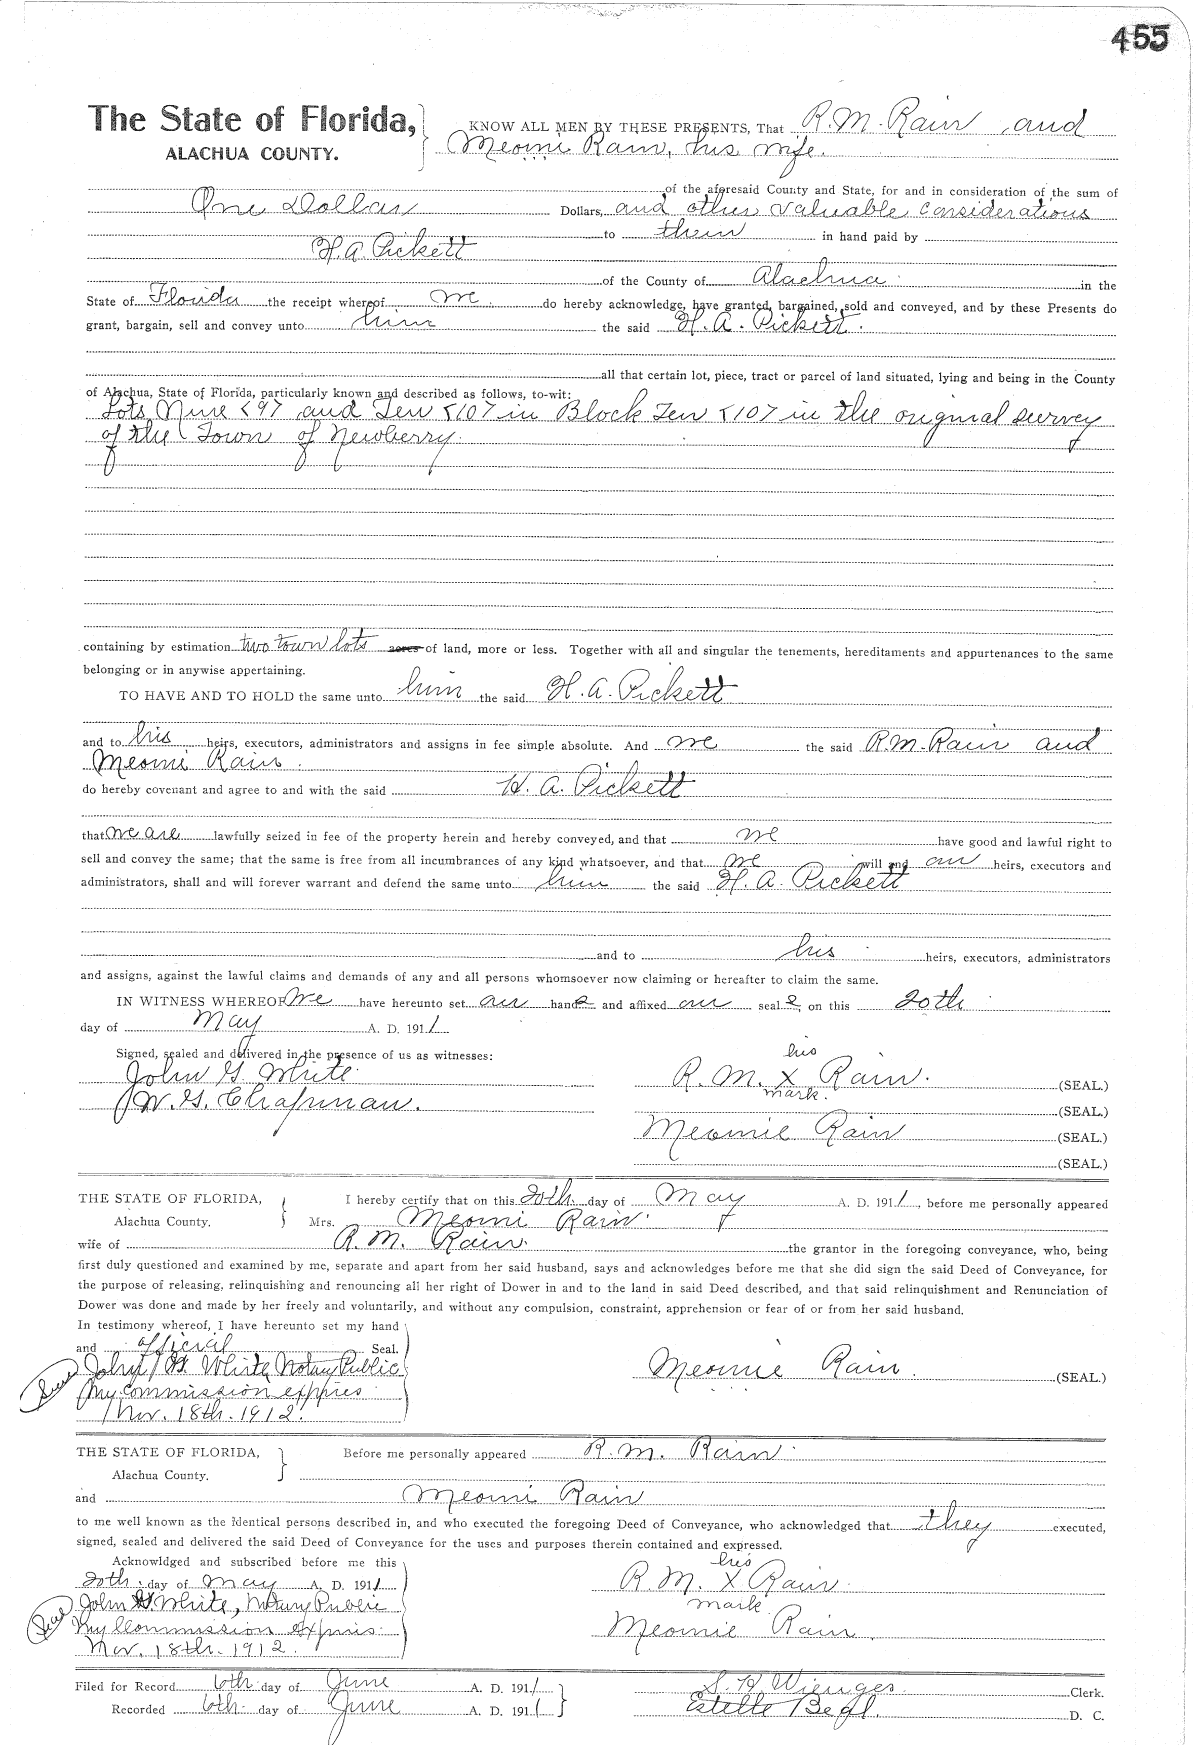 455
The State of Florida,
ALACHUA COUNTY.
KNOW ALL MEN BY THESE PRESENTS, That R. M. Rain and
Meomi Rain, his wife.
of the aforesaid County and State, for and in consideration of the sum of
One Dollar Dollars, and other valuable considerations
to them in hand paid by
H. A. Pickett
of the County of Alachua in the
State of Florida the receipt whereof we do hereby acknowledge, have granted, bargained, sold and conveyed, and by these Presents do
grant, bargain, sell and convey unto him the said H. A. Pickett.
all that certain lot, piece, tract or parcel of land situated, lying and being in the County
of Alachua, State of Florida, particularly known and described as follows, to-wit:
Lots Nine <9> and Ten <10> in Block Ten <10> in the original survey
of the Town of Newberry.
containing by estimation two town lots acres of land, more or less. Together with all and singular the tenements, hereditaments and appurtenances to the same
belonging or in anywise appertaining.
TO HAVE AND TO HOLD the same unto him the said H. A. Pickett
and to his heirs, executors, administrators and assigns in fee simple absolute. And we the said R. M. Rain and
Meomi Rain.
do hereby covenant and agree to and with the said H. A. Pickett
that we are lawfully seized in fee of the property herein and hereby conveyed, and that we have good and lawful right to
sell and convey the same; that the same is free from all incumbrances of any kind whatsoever, and that we will and our heirs, executors and
administrators, shall and will forever warrant and defend the same unto him the said H. A. Pickett
and to his heirs, executors, administrators
and assigns, against the lawful claims and demands of any and all persons whomsoever now claiming or hereafter to claim the same.
IN WITNESS WHEREOF We have hereunto set our hands and affixed our seals on this 20th
day of May A. D. 1911
Signed, sealed and delivered in the presence of us as witnesses:
his
John G. White R. M. X Rain. (SEAL.)
mark.
W. G. Chapman. (SEAL.)
Meomie Rain (SEAL.)
(SEAL.)
THE STATE OF FLORIDA, I hereby certify that on this 20th day of May A. D. 1911, before me personally appeared
Alachua County. Mrs. Meomi Rain.
wife of R. M. Rain. the grantor in the foregoing conveyance, who, being
first duly questioned and examined by me, separate and apart from her said husband, says and acknowledges before me that she did sign the said Deed of Conveyance, for
the purpose of releasing, relinquishing and renouncing all her right of Dower in and to the land in said Deed described, and that said relinquishment and Renunciation of
Dower was done and made by her freely and voluntarily, and without any compulsion, constraint, apprehension or fear of or from her said husband.
In testimony whereof, I have hereunto set my hand
and official Seal.
Seal John G. White, Notary Public Meomie Rain. (SEAL.)
My commission expires
Nov. 18th. 1912.
THE STATE OF FLORIDA, Before me personally appeared R. M. Rain.
Alachua County.
and Meomi Rain
to me well known as the identical persons described in, and who executed the foregoing Deed of Conveyance, who acknowledged that they executed,
signed, sealed and delivered the said Deed of Conveyance for the uses and purposes therein contained and expressed.
Acknowldged and subscribed before me this his
20th. day of May A. D. 1911 R. M. X Rain.
Seal John G. White, Notary Public mark
My Commission expires. Meomie Rain.
Nov. 18th. 1912.
Filed for Record 6th. day of June A. D. 1911 S. H. Wienges Clerk.
Recorded 6th. day of June A. D. 1911 Estelle D. C.